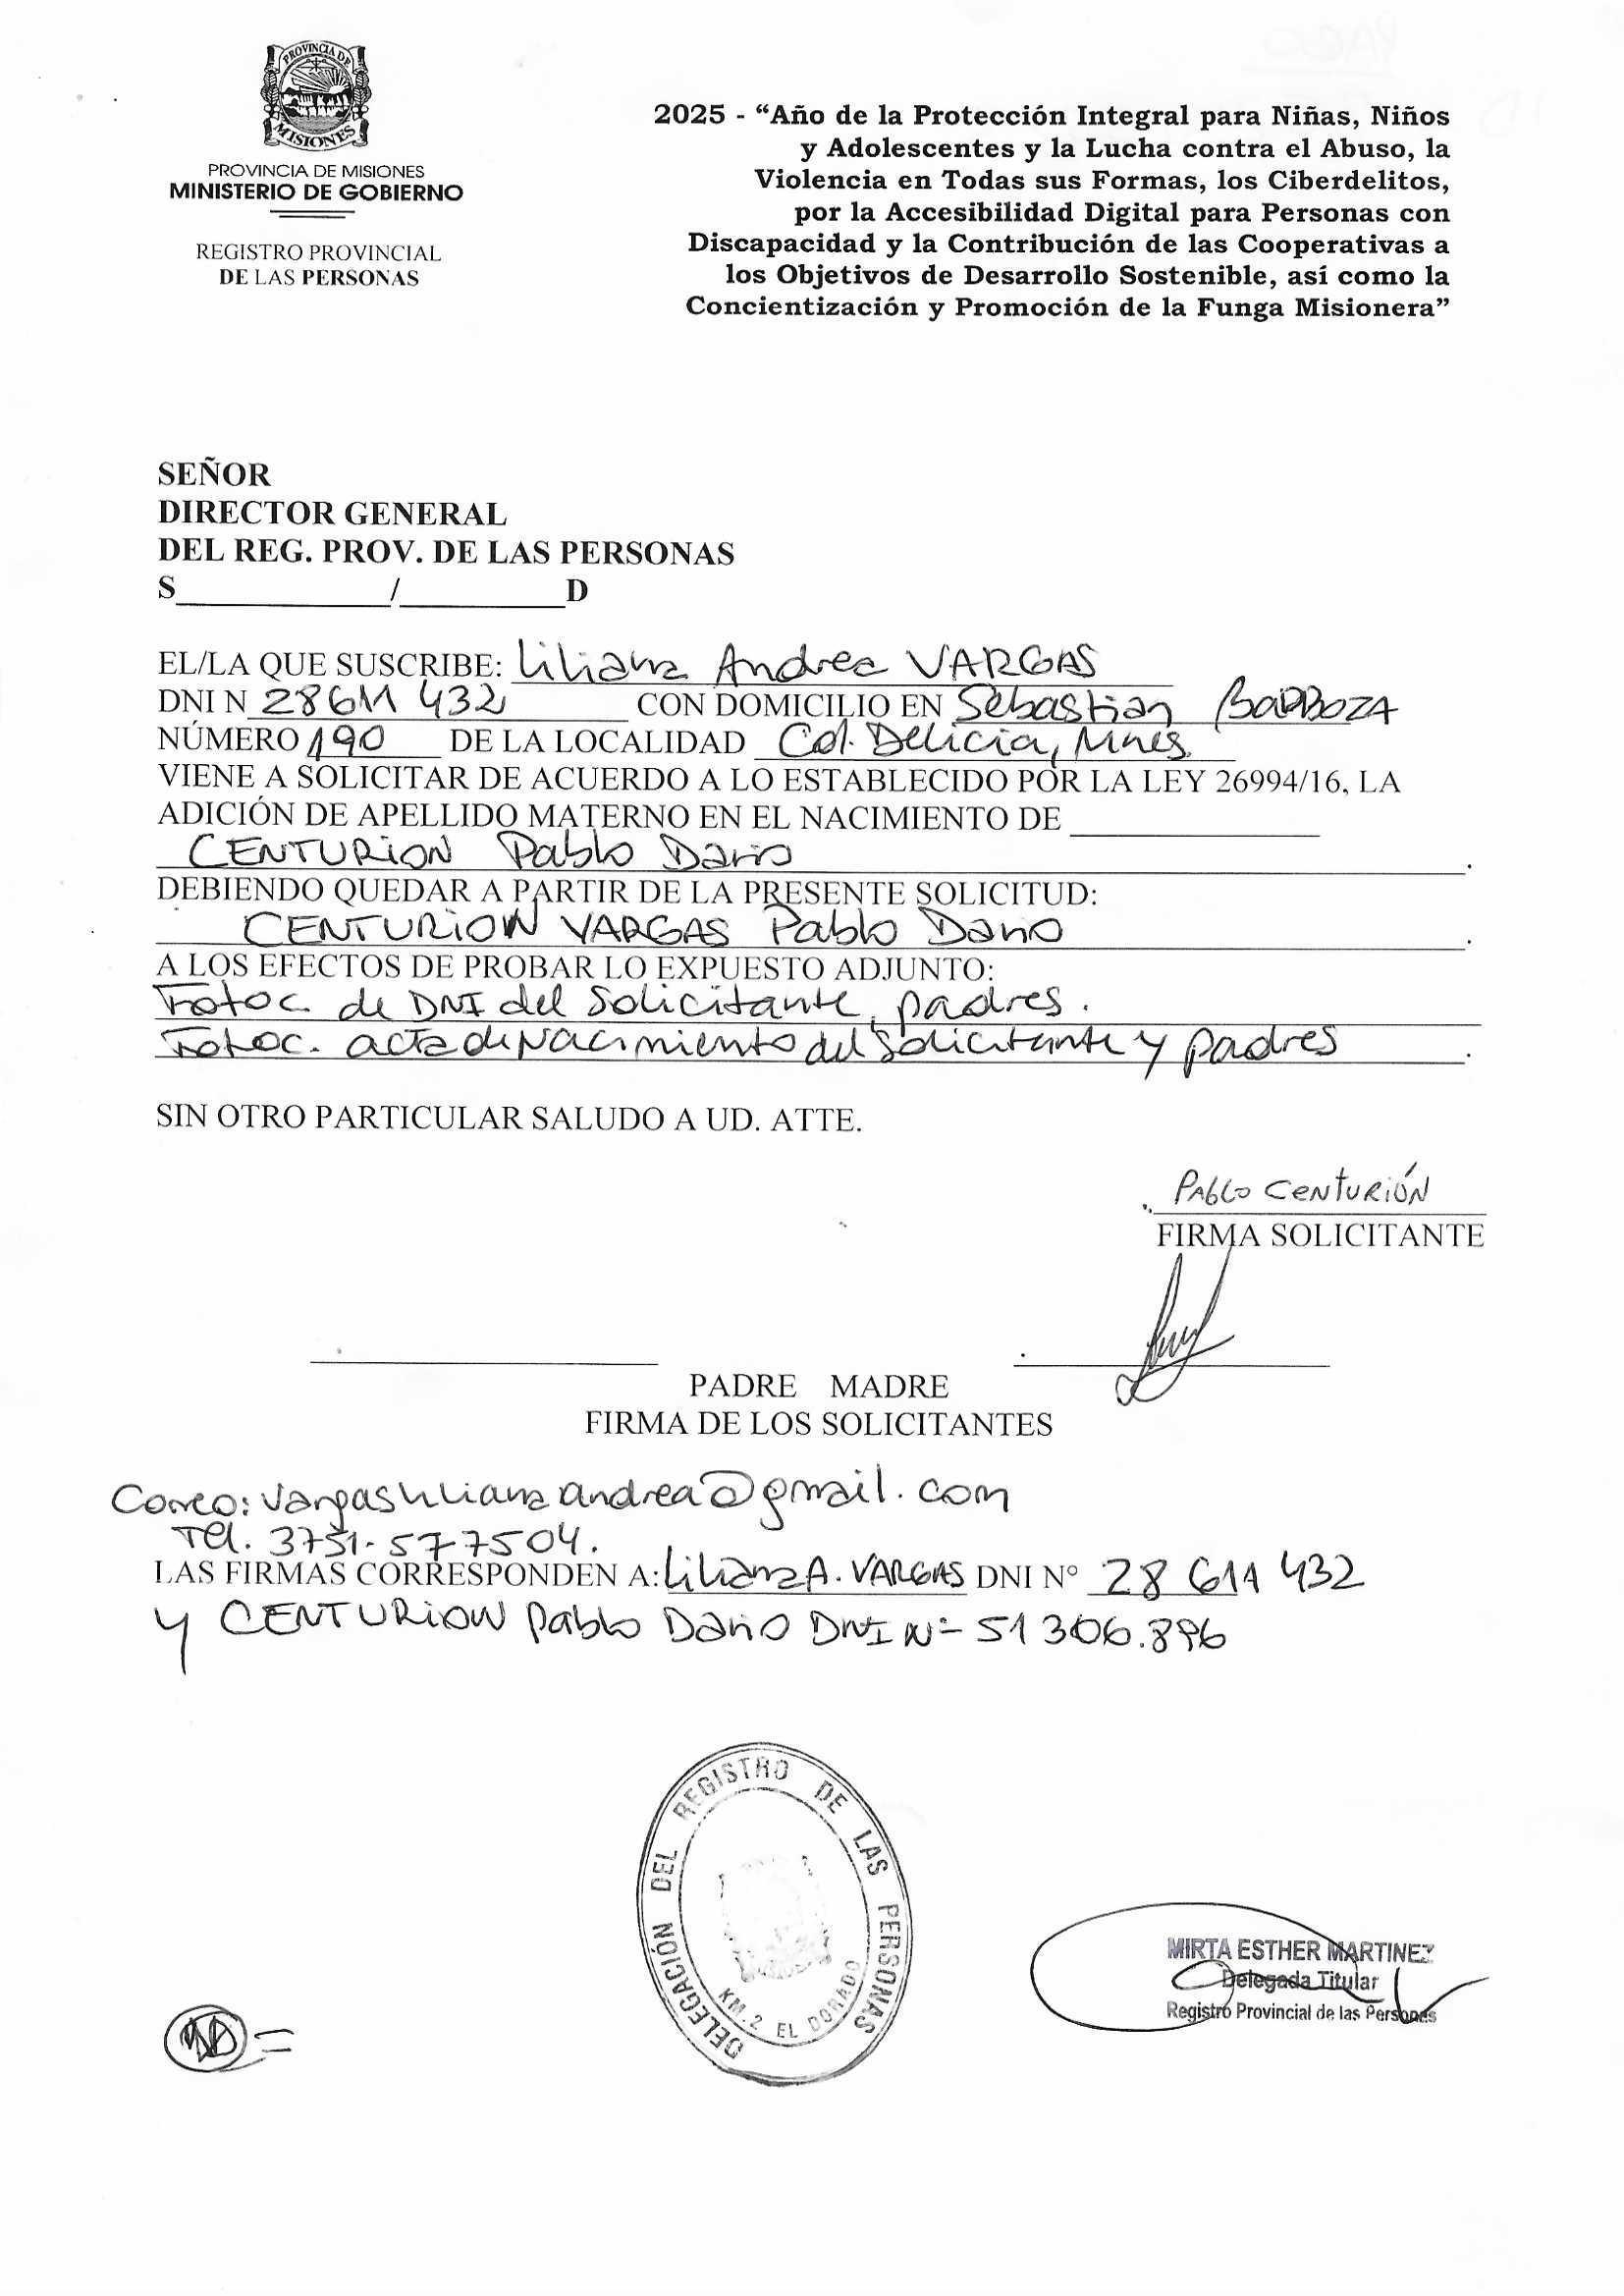 PROVINCIA DE
MISIONES
PROVINCIA DE MISIONES
MINISTERIO DE GOBIERNO
REGISTRO PROVINCIAL
DE LAS PERSONAS
2025 - “Año de la Protección Integral para Niñas, Niños
y Adolescentes y la Lucha contra el Abuso, la
Violencia en Todas sus Formas, los Ciberdelitos,
por la Accesibilidad Digital para Personas con
Discapacidad y la Contribución de las Cooperativas a
los Objetivos de Desarrollo Sostenible, así como la
Concientización y Promoción de la Funga Misionera”
SEÑOR
DIRECTOR GENERAL
DEL REG. PROV. DE LAS PERSONAS
S____________/_________D
EL/LA QUE SUSCRIBE: Liliana Andrea VARGAS
DNI N 28611 432 CON DOMICILIO EN Sebastian BARBOZA
NÚMERO 190 DE LA LOCALIDAD Col. Delicia, Mnes.
VIENE A SOLICITAR DE ACUERDO A LO ESTABLECIDO POR LA LEY 26994/16, LA
ADICIÓN DE APELLIDO MATERNO EN EL NACIMIENTO DE
CENTURION Pablo Dario.
DEBIENDO QUEDAR A PARTIR DE LA PRESENTE SOLICITUD:
CENTURION VARGAS Pablo Dario.
A LOS EFECTOS DE PROBAR LO EXPUESTO ADJUNTO:
Fotoc. de DNI del Solicitante, padres.
Fotoc. acta de Nacimiento del Solicitante y padres.
SIN OTRO PARTICULAR SALUDO A UD. ATTE.
Pablo Centurión
FIRMA SOLICITANTE
PADRE MADRE
FIRMA DE LOS SOLICITANTES
Correo: vargaslilianaandrea@gmail.com
Tel. 3751-577504.
LAS FIRMAS CORRESPONDEN A: Liliana A. VARGAS DNI N° 28 611 432
y CENTURION Pablo Dario DNI Nº 51 306.896
DELEGACIÓN DEL REGISTRO DE LAS PERSONAS
KM. 2 EL DORADO
MIRTA ESTHER MARTINEZ
Delegada Titular
Registro Provincial de las Personas